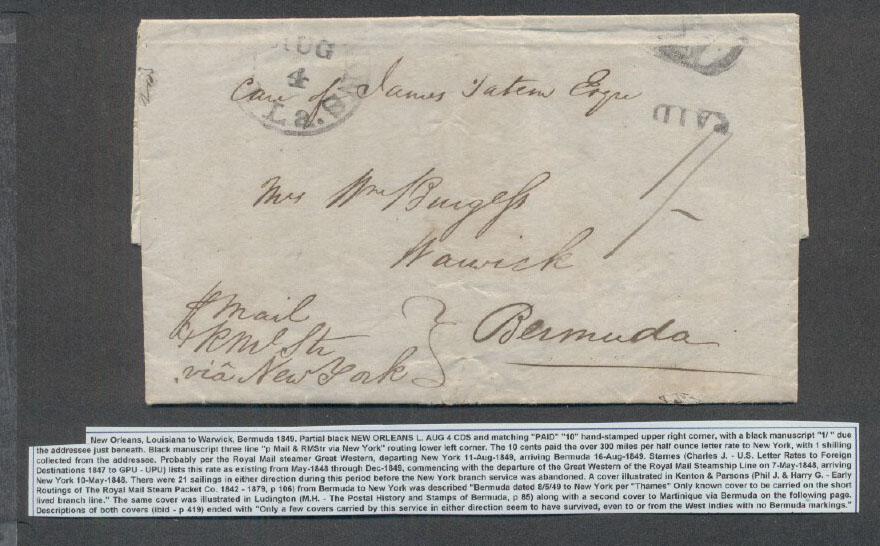 AUG
4
La.
AID
Care of James Tatem Esqre
Mrs Wm Burgess
Warwick
1/-
Bermuda
p Mail
& RMl Str
viâ New York
New Orleans, Louisiana to Warwick, Bermuda 1849. Partial black NEW ORLEANS L. AUG 4 CDS and matching "PAID" "10" hand-stamped upper right corner, with a black manuscript "1/ " due
the addressee just beneath. Black manuscript three line "p Mail & RMStr via New York" routing lower left corner. The 10 cents paid the over 300 miles per half ounce letter rate to New York, with 1 shilling
collected from the addressee. Probably per the Royal Mail steamer Great Western, departing New York 11-Aug-1849, arriving Bermuda 16-Aug-1849. Starnes (Charles J. - U.S. Letter Rates to Foreign
Destinations 1847 to GPU - UPU) lists this rate as existing from May-1848 through Dec-1849, commencing with the departure of the Great Western of the Royal Mail Steamship Line on 7-May-1848, arriving
New York 10-May-1848. There were 21 sailings in either direction during this period before the New York branch service was abandoned. A cover illustrated in Kenton & Parsons (Phil J. & Harry G. - Early
Routings of The Royal Mail Steam Packet Co. 1842 - 1879, p 106) from Bermuda to New York was described "Bermuda dated 8/5/49 to New York per "Thames" Only known cover to be carried on the short
lived branch line." The same cover was illustrated in Ludington (M.H. - The Postal History and Stamps of Bermuda, p 85) along with a second cover to Martinique via Bermuda on the following page.
Descriptions of both covers (ibid - p 419) ended with "Only a few covers carried by this service in either direction seem to have survived, even to or from the West Indies with no Bermuda markings."